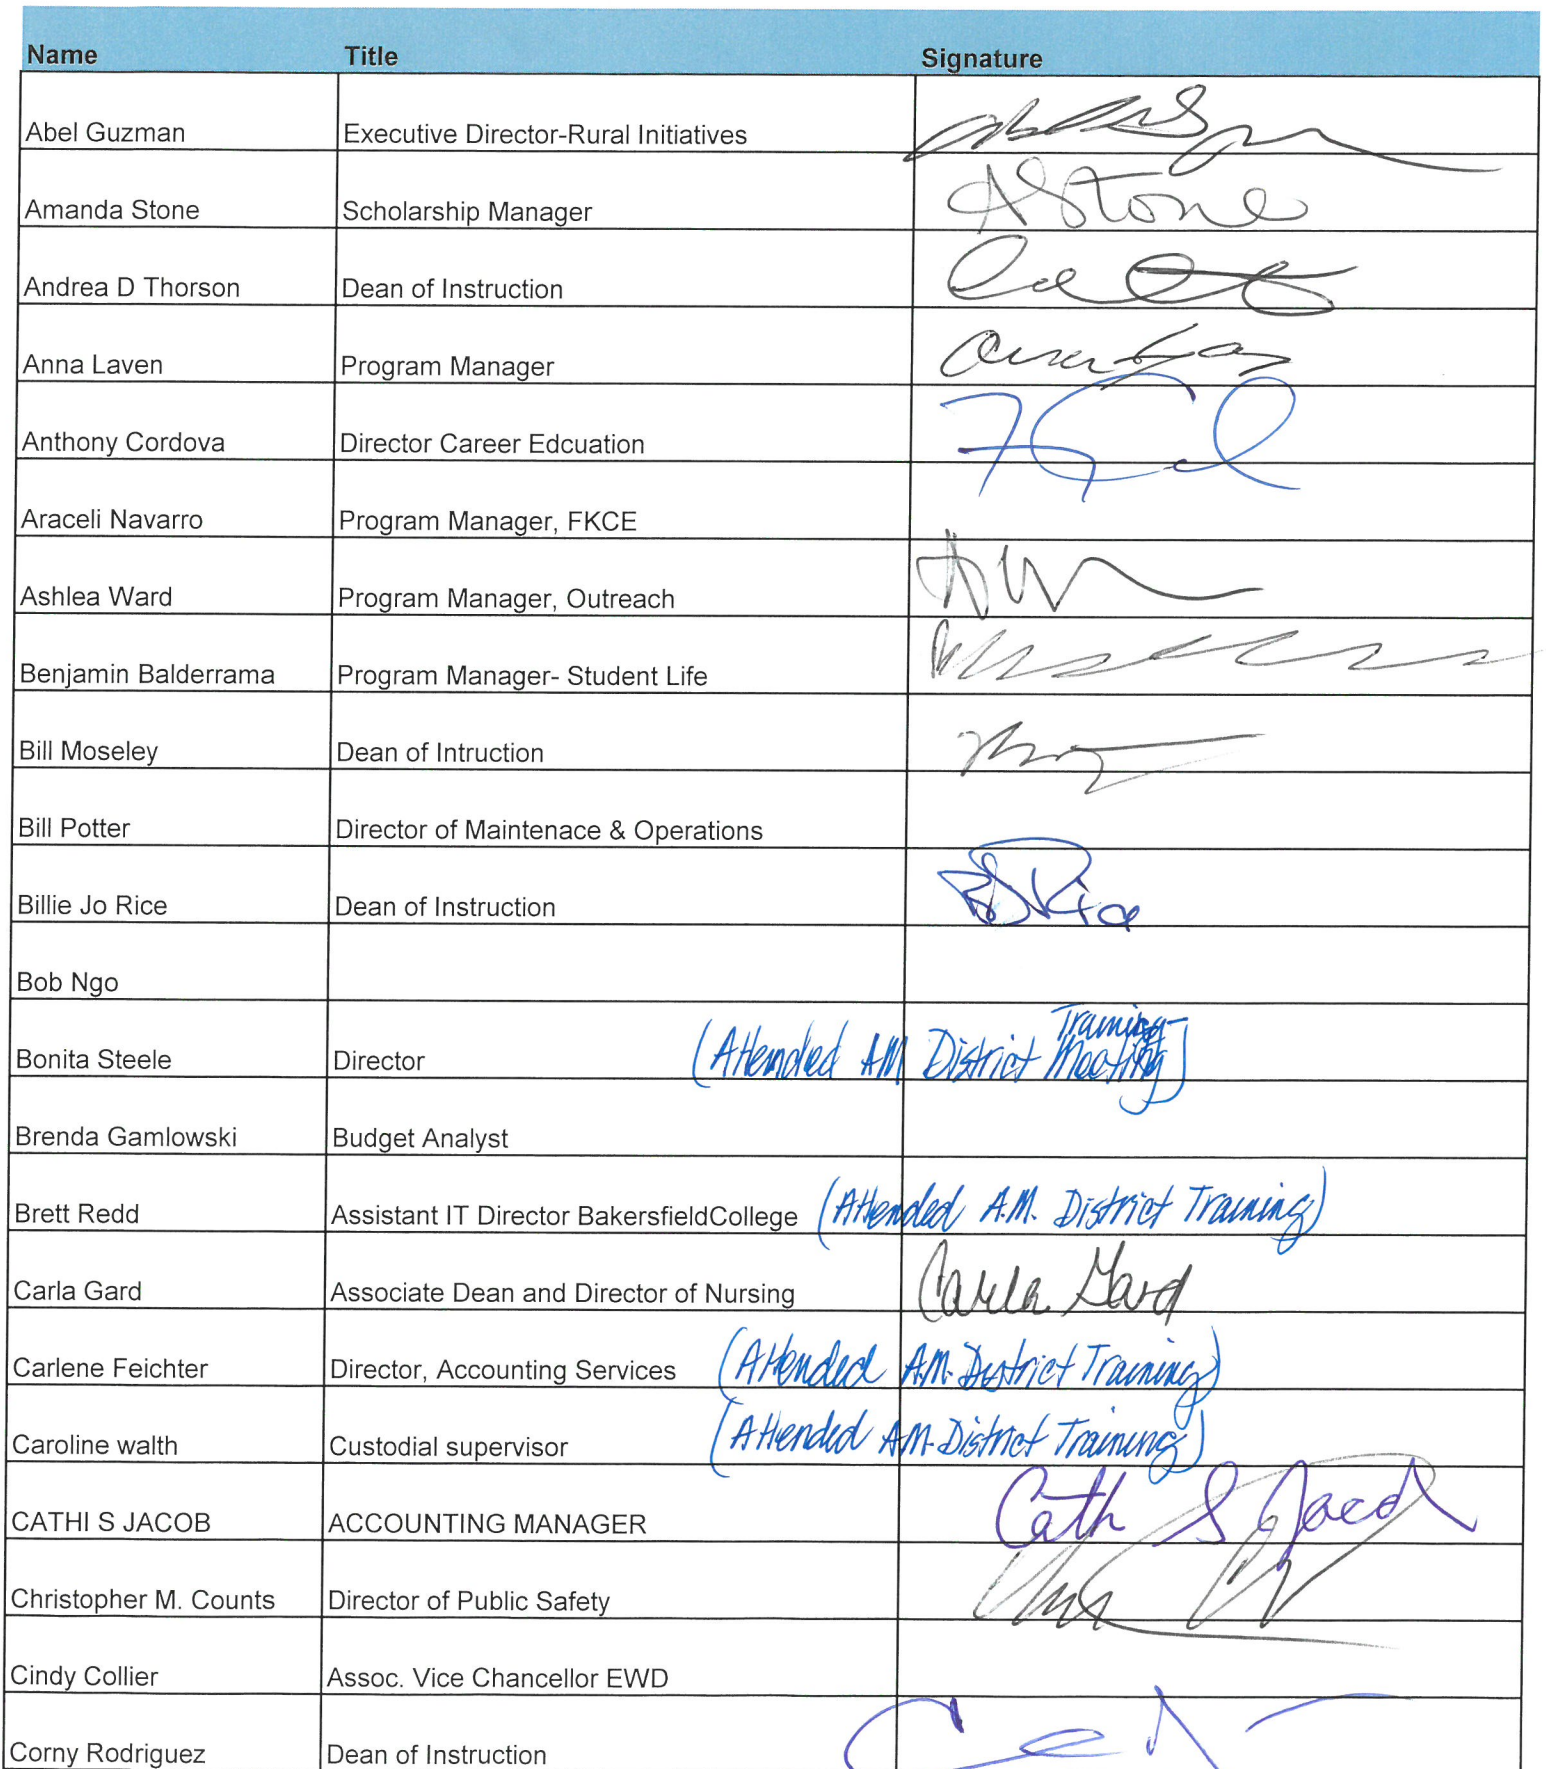 Name Title Signature
Abel Guzman Executive Director-Rural Initiatives
Amanda Stone Scholarship Manager AStone
Andrea D Thorson Dean of Instruction
Anna Laven Program Manager
Anthony Cordova Director Career Edcuation
Araceli Navarro Program Manager, FKCE
Ashlea Ward Program Manager, Outreach
Benjamin Balderrama Program Manager- Student Life
Bill Moseley Dean of Intruction
Bill Potter Director of Maintenace & Operations
Billie Jo Rice Dean of Instruction BJ Rice
Bob Ngo
Training-
Bonita Steele Director (Attended AM District Meeting)
Brenda Gamlowski Budget Analyst
Brett Redd Assistant IT Director BakersfieldCollege (Attended A.M. District Training)
Carla Gard Associate Dean and Director of Nursing Carla Gard
Carlene Feichter Director, Accounting Services (Attended A.M. District Training)
Caroline walth Custodial supervisor (Attended AM. District Training)
CATHI S JACOB ACCOUNTING MANAGER Cath S Jacob
Christopher M. Counts Director of Public Safety
Cindy Collier Assoc. Vice Chancellor EWD
Corny Rodriguez Dean of Instruction